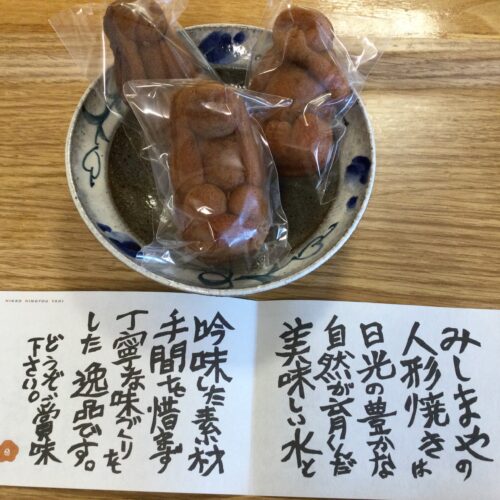 みしまやの
人形焼きは
日光の豊かな
自然が育んだ
美味しい水と
吟味した素材
手間を惜まず
丁寧な味づくりを
した逸品です。
どうぞご賞味
下さい。
NIKKO NINGYOU YAKI